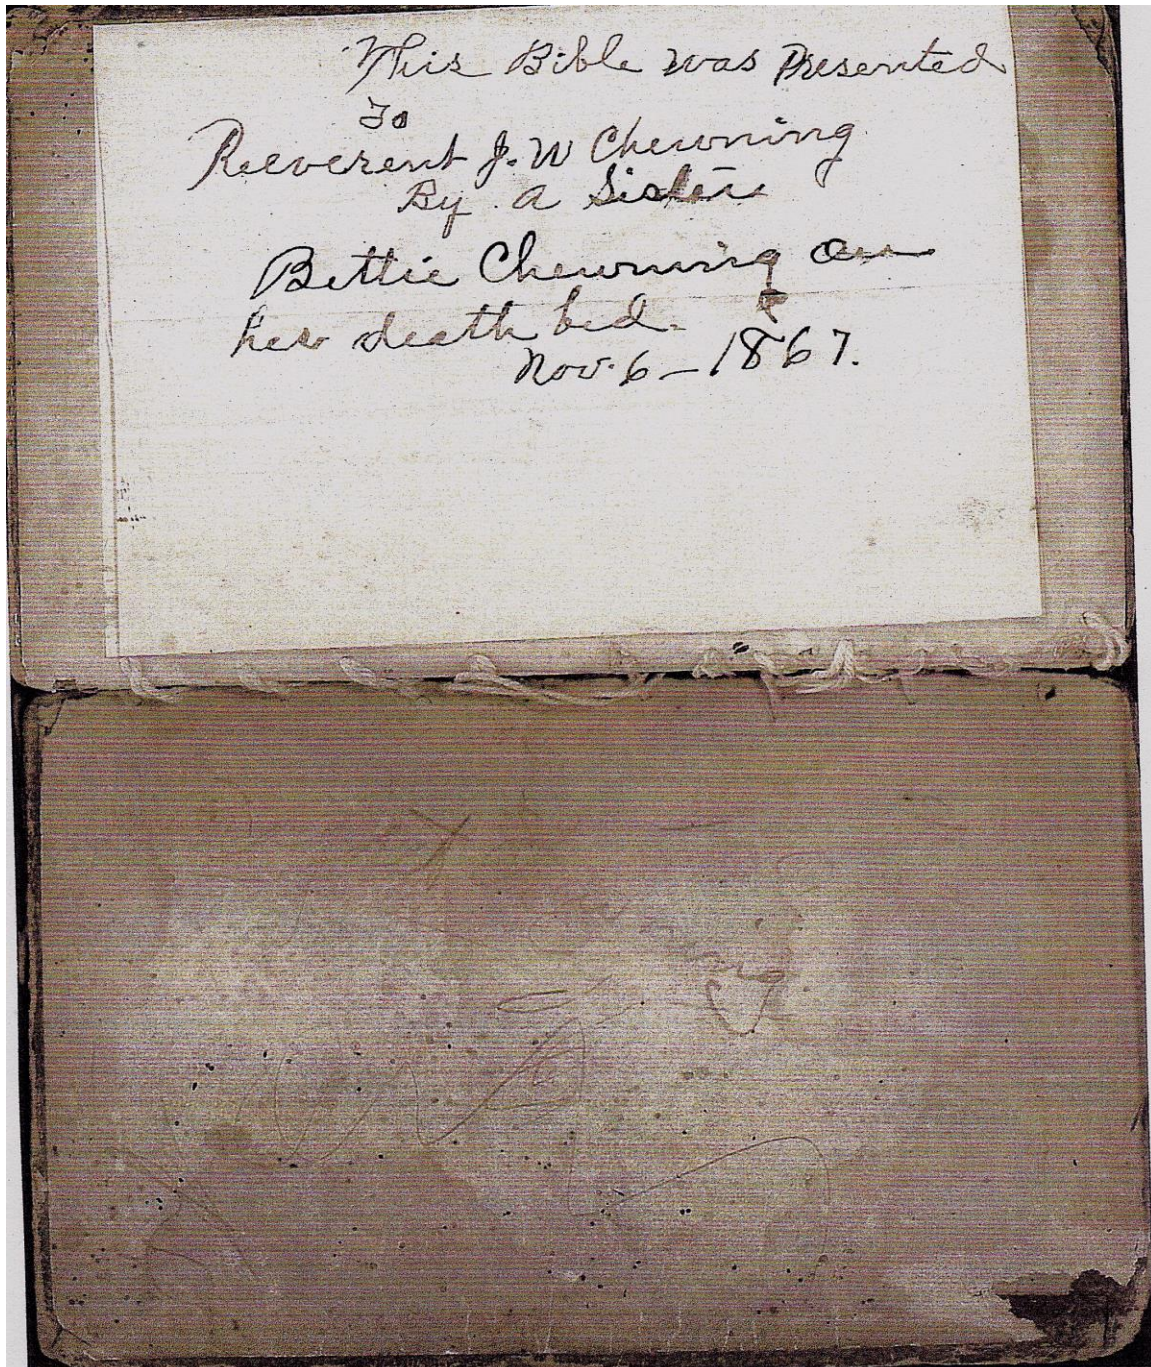 This Bible was Presented
To
Reeverent J. W Chewning
By a Sister
Bettie Chewning on
her death bed.
Nov. 6 - 1867.